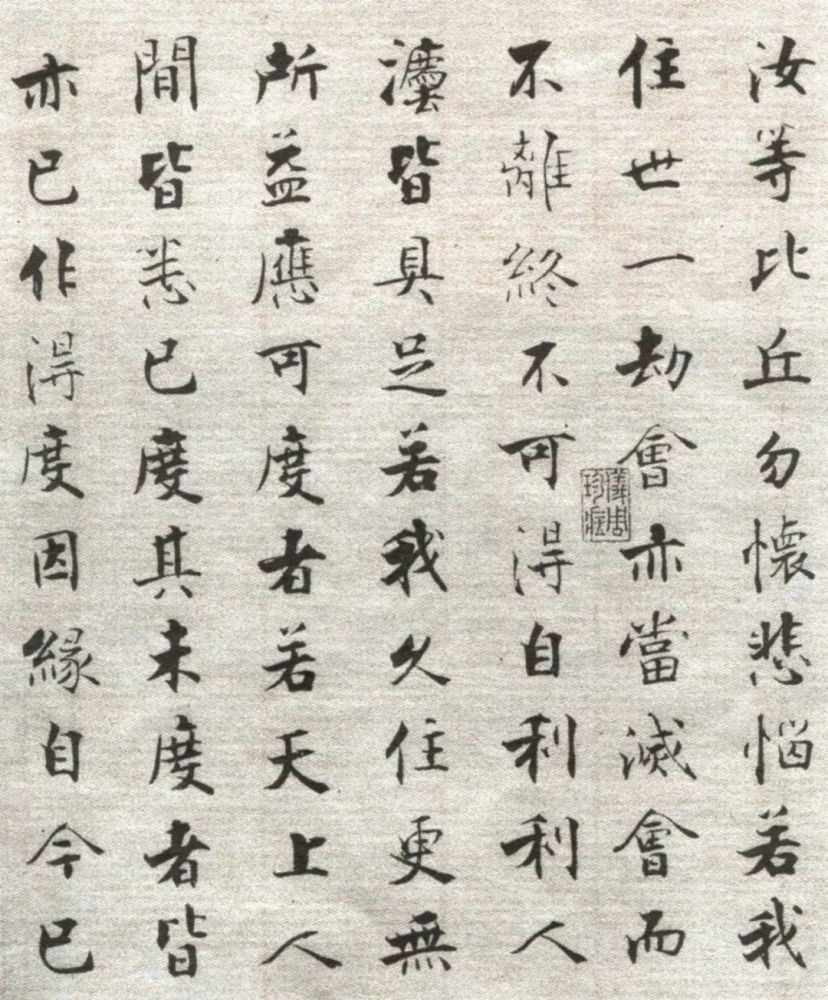 汝等比丘勿懷悲惱若我
住世一劫會亦當滅會而
不離終不可得自利利人
灋皆具足若我久住更無
所益應可度者若天上人
間皆悉已度其未度者皆
亦已作得度因緣自今已
儀周珍藏